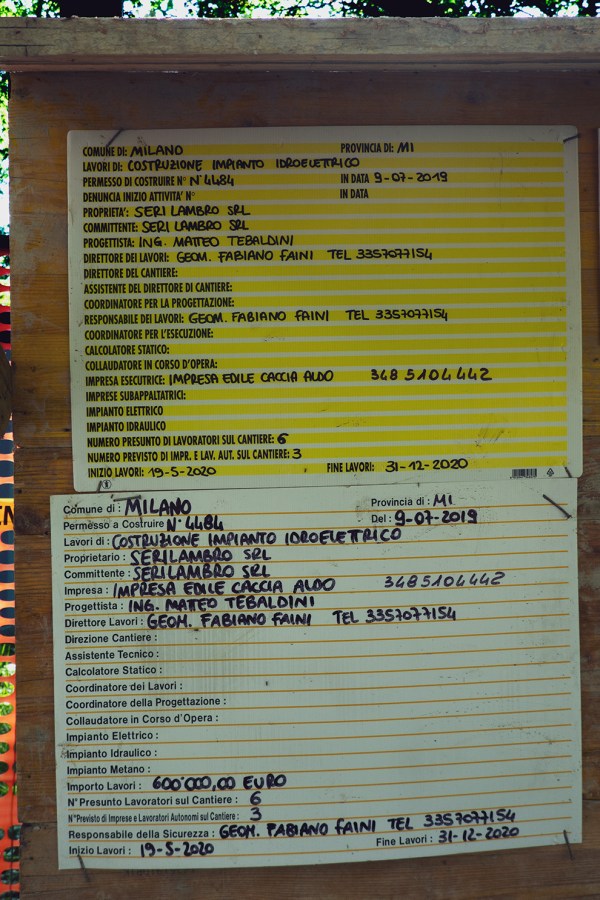 COMUNE DI: MILANO PROVINCIA DI: MI
LAVORI DI: COSTRUZIONE IMPIANTO IDROELETTRICO
PERMESSO DI COSTRUIRE N° N°4484 IN DATA 9-07-2019
DENUNCIA INIZIO ATTIVITA' N° IN DATA
PROPRIETA': SERI LAMBRO SRL
COMMITTENTE: SERI LAMBRO SRL
PROGETTISTA: ING. MATTEO TEBALDINI
DIRETTORE DEI LAVORI: GEOM. FABIANO FAINI TEL 3357077154
DIRETTORE DEL CANTIERE:
ASSISTENTE DEL DIRETTORE DI CANTIERE:
COORDINATORE PER LA PROGETTAZIONE:
RESPONSABILE DEI LAVORI: GEOM. FABIANO FAINI TEL 3357077154
COORDINATORE PER L'ESECUZIONE:
CALCOLATORE STATICO:
COLLAUDATORE IN CORSO D'OPERA:
IMPRESA ESECUTRICE: IMPRESA EDILE CACCIA ALDO 348 5104442
IMPRESE SUBAPPALTATRICI:
IMPIANTO ELETTRICO
IMPIANTO IDRAULICO
NUMERO PRESUNTO DI LAVORATORI SUL CANTIERE: 6
NUMERO PREVISTO DI IMPR. E LAV. AUT. SUL CANTIERE: 3
INIZIO LAVORI: 19-5-2020 FINE LAVORI: 31-12-2020
Comune di: MILANO Provincia di: MI
Permesso a Costruire N° 4484 Del: 9-07-2019
Lavori di: COSTRUZIONE IMPIANTO IDROELETTRICO
Proprietario: SERILAMBRO SRL
Committente: SERILAMBRO SRL
Impresa: IMPRESA EDILE CACCIA ALDO 3485104442
Progettista: ING. MATTEO TEBALDINI
Direttore Lavori: GEOM. FABIANO FAINI TEL 3357077154
Direzione Cantiere:
Assistente Tecnico:
Calcolatore Statico:
Coordinatore dei Lavori:
Coordinatore della Progettazione:
Collaudatore in Corso d'Opera:
Impianto Elettrico:
Impianto Idraulico:
Impianto Metano:
Importo Lavori: 600'000,00 EURO
N° Presunto Lavoratori sul Cantiere: 6
N° Previsto di Imprese e Lavoratori Autonomi sul Cantiere: 3
Responsabile della Sicurezza: GEOM. FABIANO FAINI TEL 3357077154
Inizio Lavori: 19-5-2020 Fine Lavori: 31-12-2020